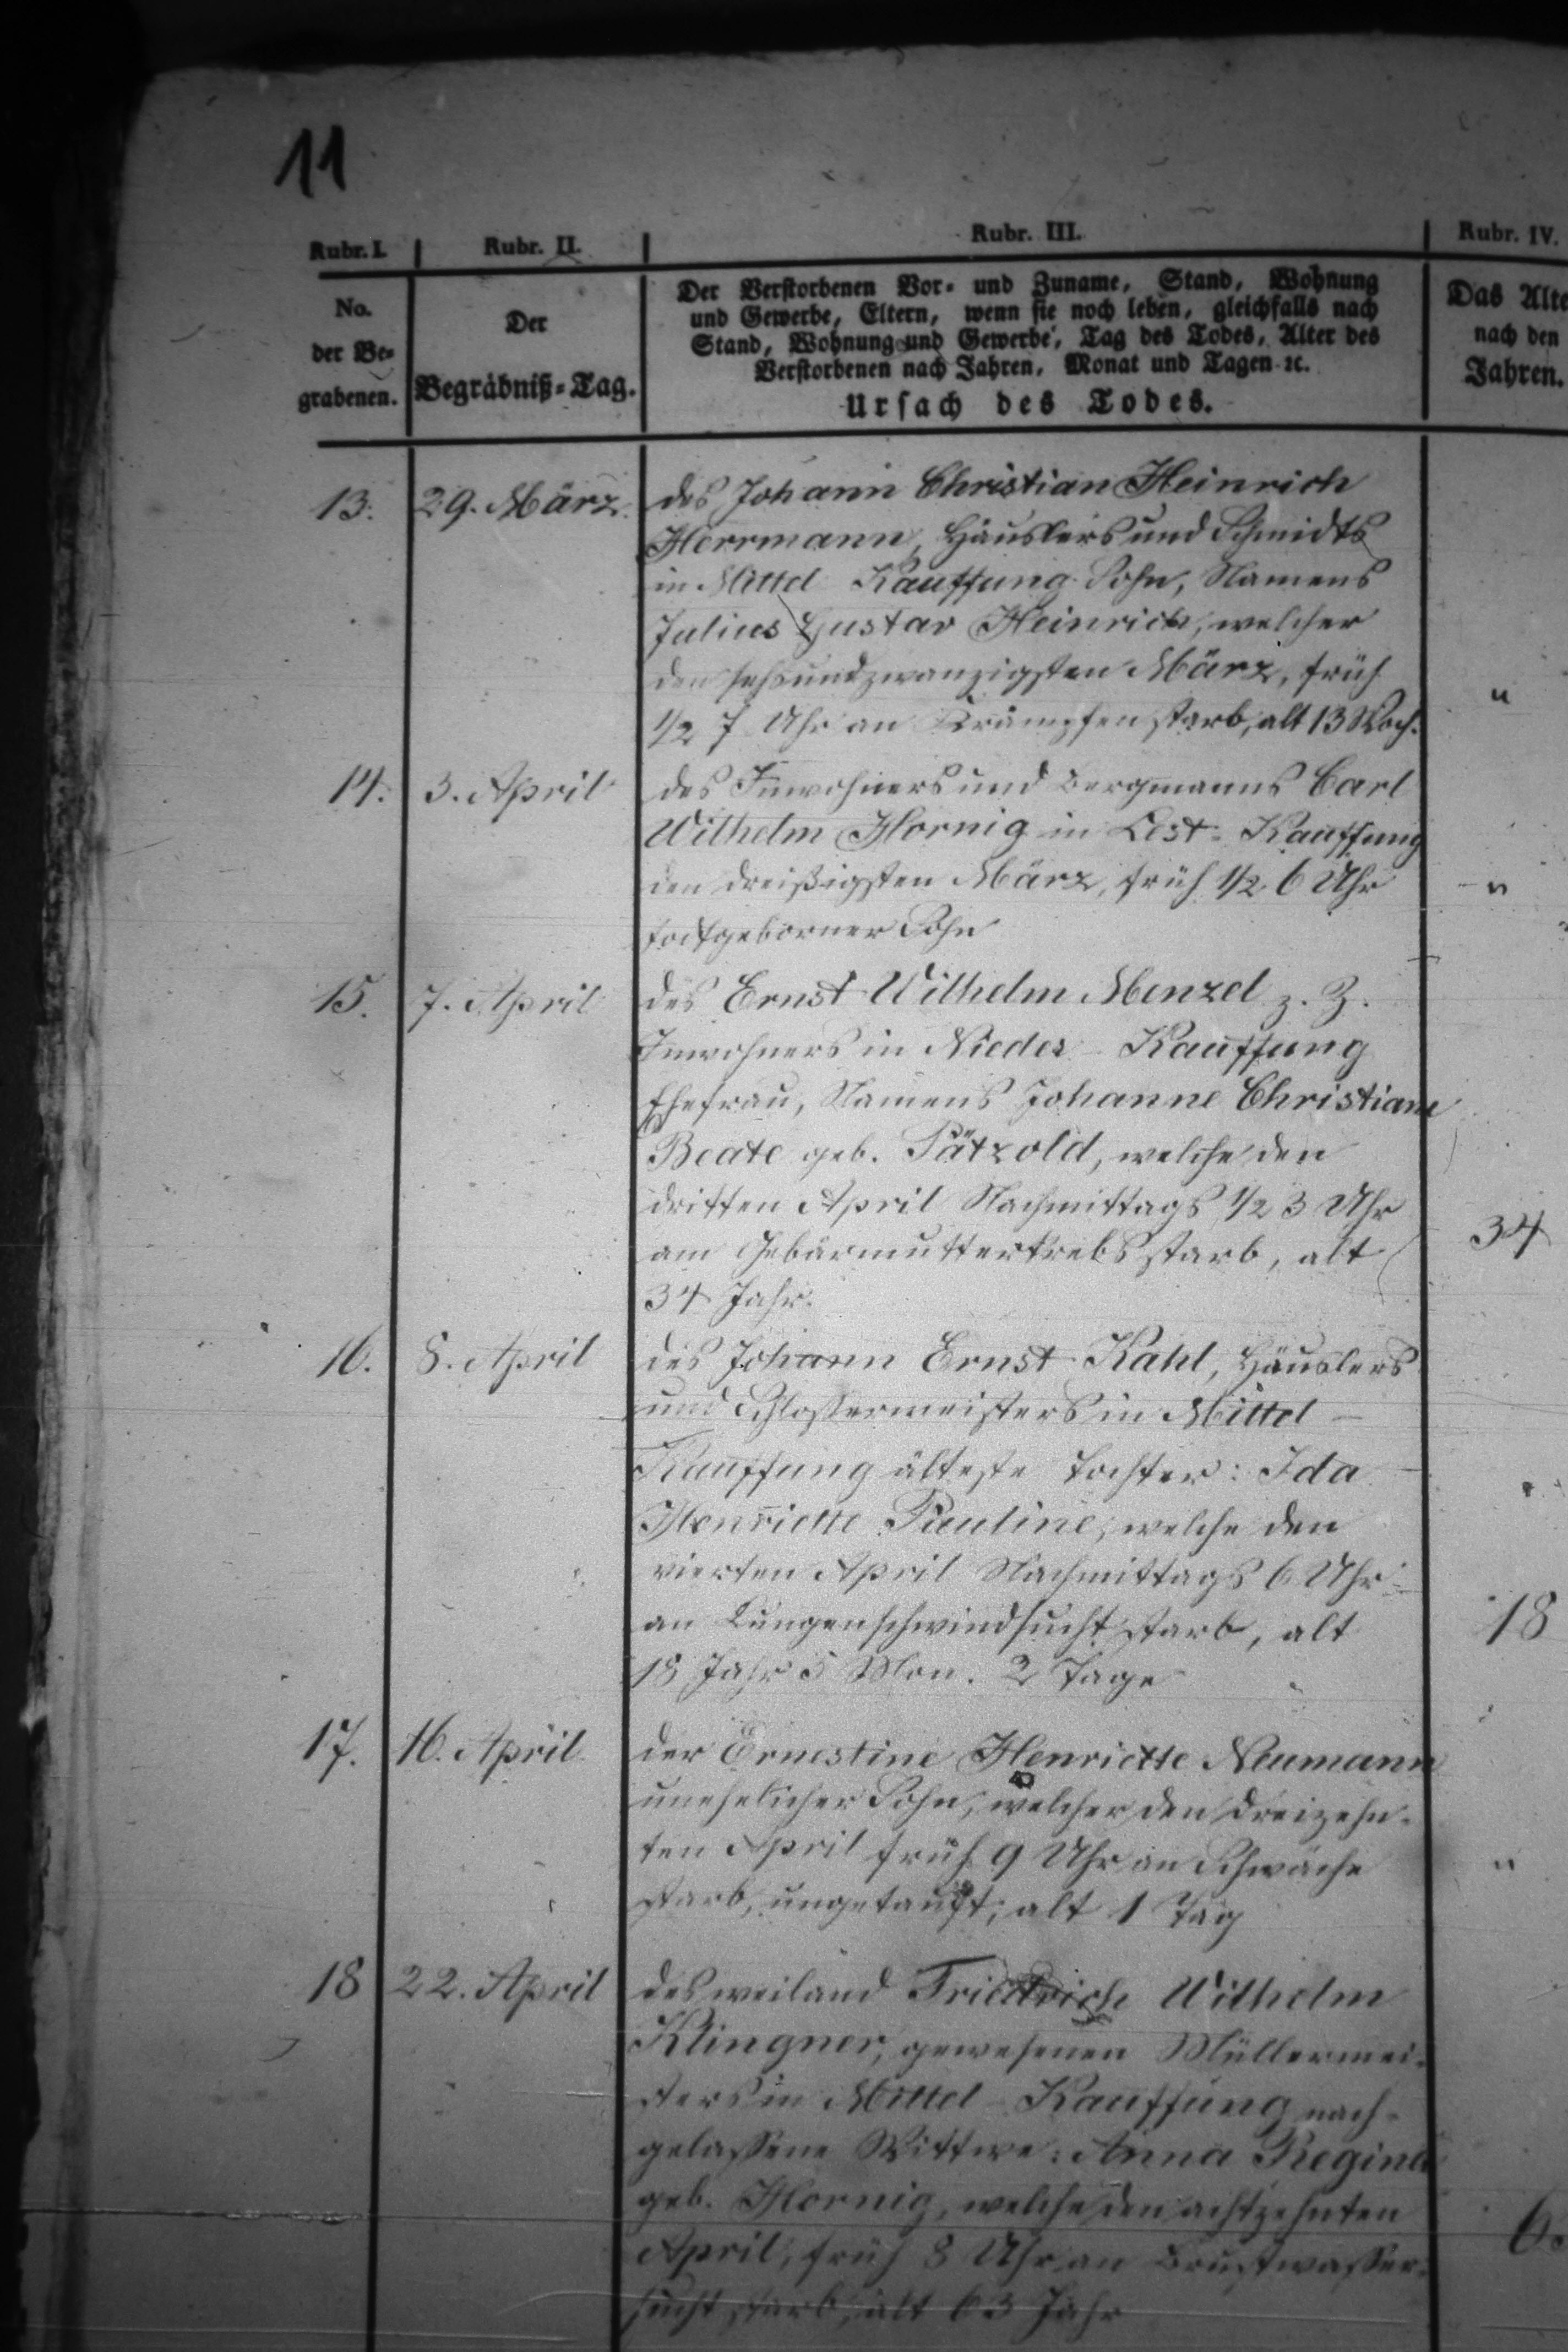 11
Rubr. I. Rubr. II. Rubr. III. Rubr. IV.
No.
der Be-
grabenen.
Der
Begräbniß-Tag.
Der Verstorbenen Vor- und Zuname, Stand, Wohnung
und Gewerbe, Eltern, wenn sie noch leben, gleichfalls nach
Stand, Wohnung und Gewerbe, Tag des Todes, Alter des
Verstorbenen nach Jahren, Monat und Tagen ꝛc.
Ursach des Todes.
Das Alte
nach den
Jahren.
13. 29. März. des Johann Christian Heinrich
Herrmann, Häuslers und Schmidts
in Mittel Kauffung Sohn, Namens
Julius Gustav Heinrich, welcher
den sechsundzwanzigsten März, früh
1/2 7 Uhr an Krämpfen starb, alt 13 Woch. "
14. 3. April des Inwohners und Bergmanns Carl
Wilhelm Hornig in Oest-Kauffung
den dreißigsten März, früh 1/2 6 Uhr "
todtgeborner Sohn
15. 7. April des Ernst Wilhelm Menzel z. Z.
Inwohners in Nieder-Kauffung
Ehefrau, Namens Johanne Christiane
Beate geb. Pätzold, welche den
dritten April Nachmittags 1/2 3 Uhr
am Gebärmutterkrebs starb, alt 34
34 Jahr.
16. 8. April des Johann Ernst Kahl, Häuslers
und Schlossermeisters in Mittel-
Kauffung älteste Tochter: Ida
Henriette Pauline, welche den
vierten April Nachmittags 6 Uhr
an Lungenschwindsucht starb, alt 18
18 Jahr 5 Mon. 2 Tage
17. 16. April der Ernestine Henriette Neumann
unehelicher Sohn, welcher den dreizehn-
ten April früh 9 Uhr an Schwäche
starb, ungetauft, alt 1 Tag "
18 22. April des weiland Friedrich Wilhelm
Klingner, gewesenen Müllermei-
sters in Mittel-Kauffung nach-
gelassene Wittwe: Anna Regina
geb. Hornig, welche den achtzehnten
April, früh 8 Uhr an Brustwasser-
sucht starb, alt 63 Jahr